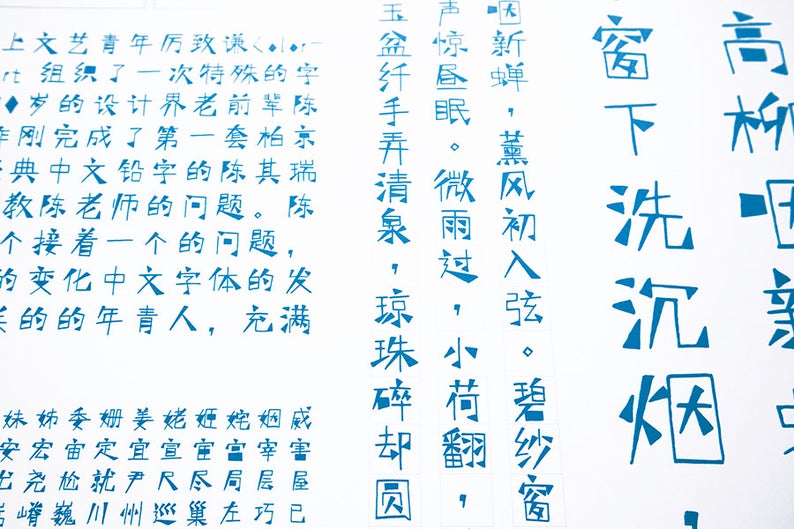 上文艺青年厉致谦<olor-
rt 组织了一次特殊的字
岁的设计界老前辈陈
刚完成了第一套柏京
典中文铅字的陈其瑞
教陈老师的问题。陈
个接着一个的问题，
的变化中文字体的发
的的年青人，充满
妹姊委姗姜姥姬姹姻威
安宏宙定宜宣宙宫宰害
尧尬就尹尺尽局层屋
嵴巍川州巡巢左巧已
高柳
咽新
窗下洗沉烟，
咽新蝉，薰风初入弦。碧纱窗
声惊昼眠。微雨过，小荷翻，
玉盆纤手弄清泉，琼珠碎却圆